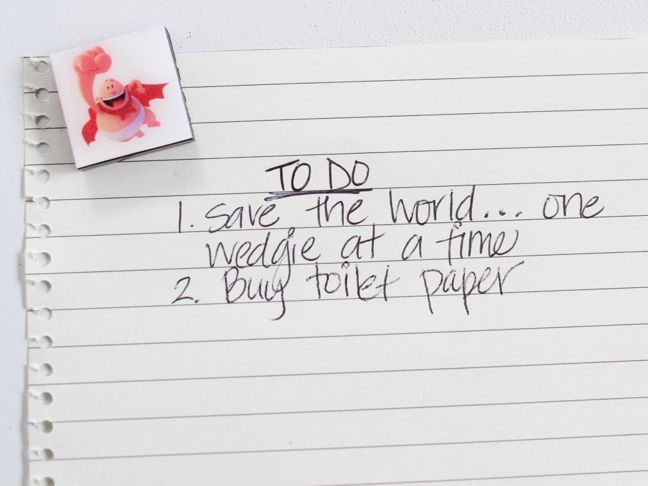 TO DO
1. Save the world... one
wedgie at a time
2. Buy toilet paper